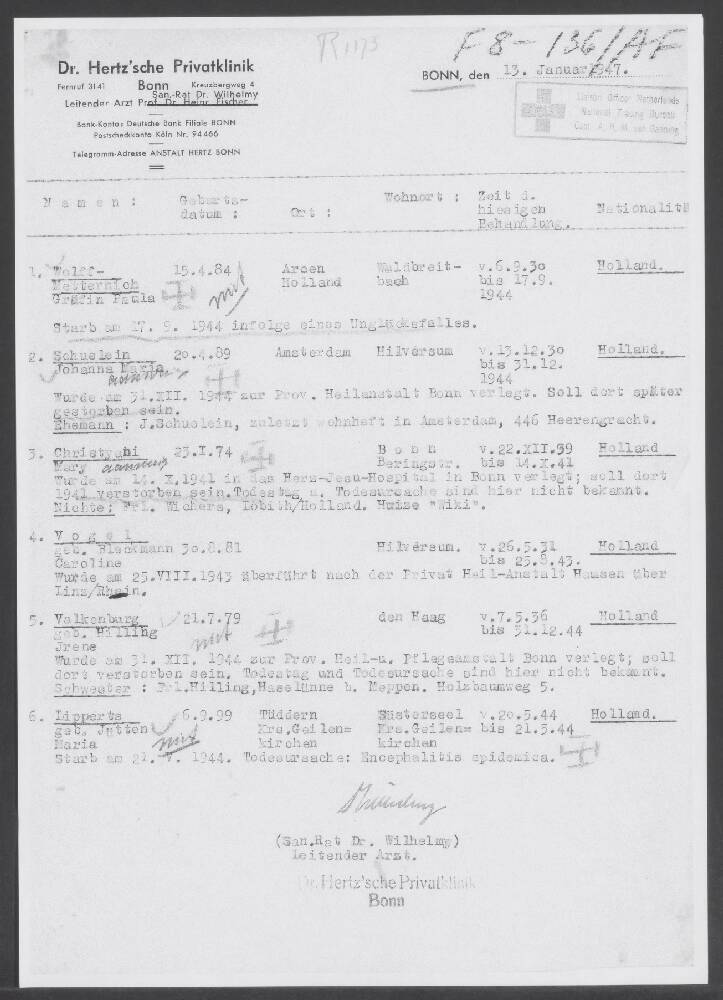 R1173
F8-136/AF
Dr. Hertz'sche Privatklinik
Fernruf 3141 Bonn Kreuzbergweg 4
San.-Rat Dr. Wilhelmy
Leitender Arzt Prof. Dr. Heinr. Fischer
Bank-Konto: Deutsche Bank Filiale BONN
Postscheckkonto Köln Nr. 94466
Telegramm-Adresse ANSTALT HERTZ BONN
BONN, den 13. Januar 1947.
Liaison Officer Netherlands
National Tracing Bureau
Capt. A. H. M.
N a m e n : Geburts- Ort : Wohnort : Zeit d. Nationalit
datum : hiesigen
Behandlung.
1. Wolff- 15.4.84 Arcen Waldbreit- v.6.9.30 Holland.
Metternich Holland bach bis 17.9.
Gräfin Paula mut 1944
Starb am 17. 9. 1944 infolge eines Unglücksfalles.
2. Schuelein 20.4.89 Amsterdam Hilversum v.13.12.30 Holland.
Johanna Maria bis 31.12.
1944
Wurde am 31.XII. 1944 zur Prov. Heilanstalt Bonn verlegt. Soll dort später
gestorben sein.
Ehemann : J.Schuelein, zuletzt wohnheft in Amsterdam, 446 Heerengracht.
3. Christyabi 23.I.74 B o n n v.22.XII.39 Holland
Mary Beringstr. bis 14.X.41
Wurde am 14. X.1941 in das Herz-Jesu-Hospital in Bonn verlegt; soll dort
1941 verstorben sein.Todestag u. Todesursache sind hier nicht bekannt.
Nichte: Frl. Wichers, Lobith/Holland. Huize "Wiki".
4. V o g e l
geb. Bleckmann 30.8.81 Hilversum. v.26.5.31 Holland
Caroline bis 25.8.43.
Wurde am 25.VIII.1943 überführt nach der Privat Heil-Anstalt Hausen über
Linz/Rhein.
5. Valkenburg 21.7.79 den Haag v.7.5.36 Holland
geb. Hilling mut bis 31.12.44
Jrene
Wurde am 31. XII. 1944 zur Prov. Heil-u. Pflegeanstalt Bonn verlegt; soll
dort verstorben sein. Todestag und Todesursache sind hier nicht bekannt.
Schwester : Frl.Hilling,Haselünne b. Meppen. Holzbaumweg 5.
6. Lipperts 6.9.99 Tüddern Süsterseel v.20.5.44 Holland.
geb. Jütten Krs.Geilen= Krs.Geilen= bis 21.5.44
Maria mut kirchen kirchen
Starb am 21. V. 1944. Todesursache: Encephalitis epidemica.
(San.Rat Dr. Wilhelmy)
Leitender Arzt.
Dr. Hertz'sche Privatklinik
Bonn